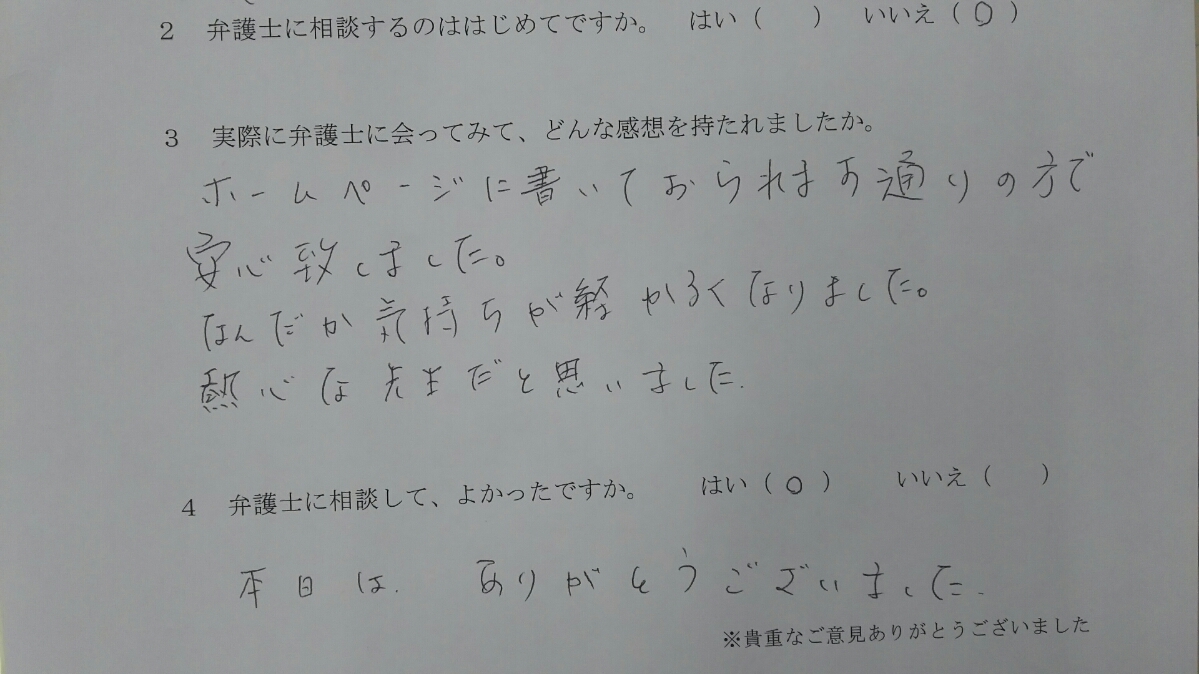 2 弁護士に相談するのははじめてですか。 はい（ ） いいえ（○）
3 実際に弁護士に会ってみて、どんな感想を持たれましたか。
ホームページに書いておられます通りの方で
安心致しました。
なんだか気持ちが軽かるくなりました。
熱心な先生だと思いました.
4 弁護士に相談して、よかったですか。 はい（○） いいえ（ ）
本日は. ありがとうございました.
※貴重なご意見ありがとうございました